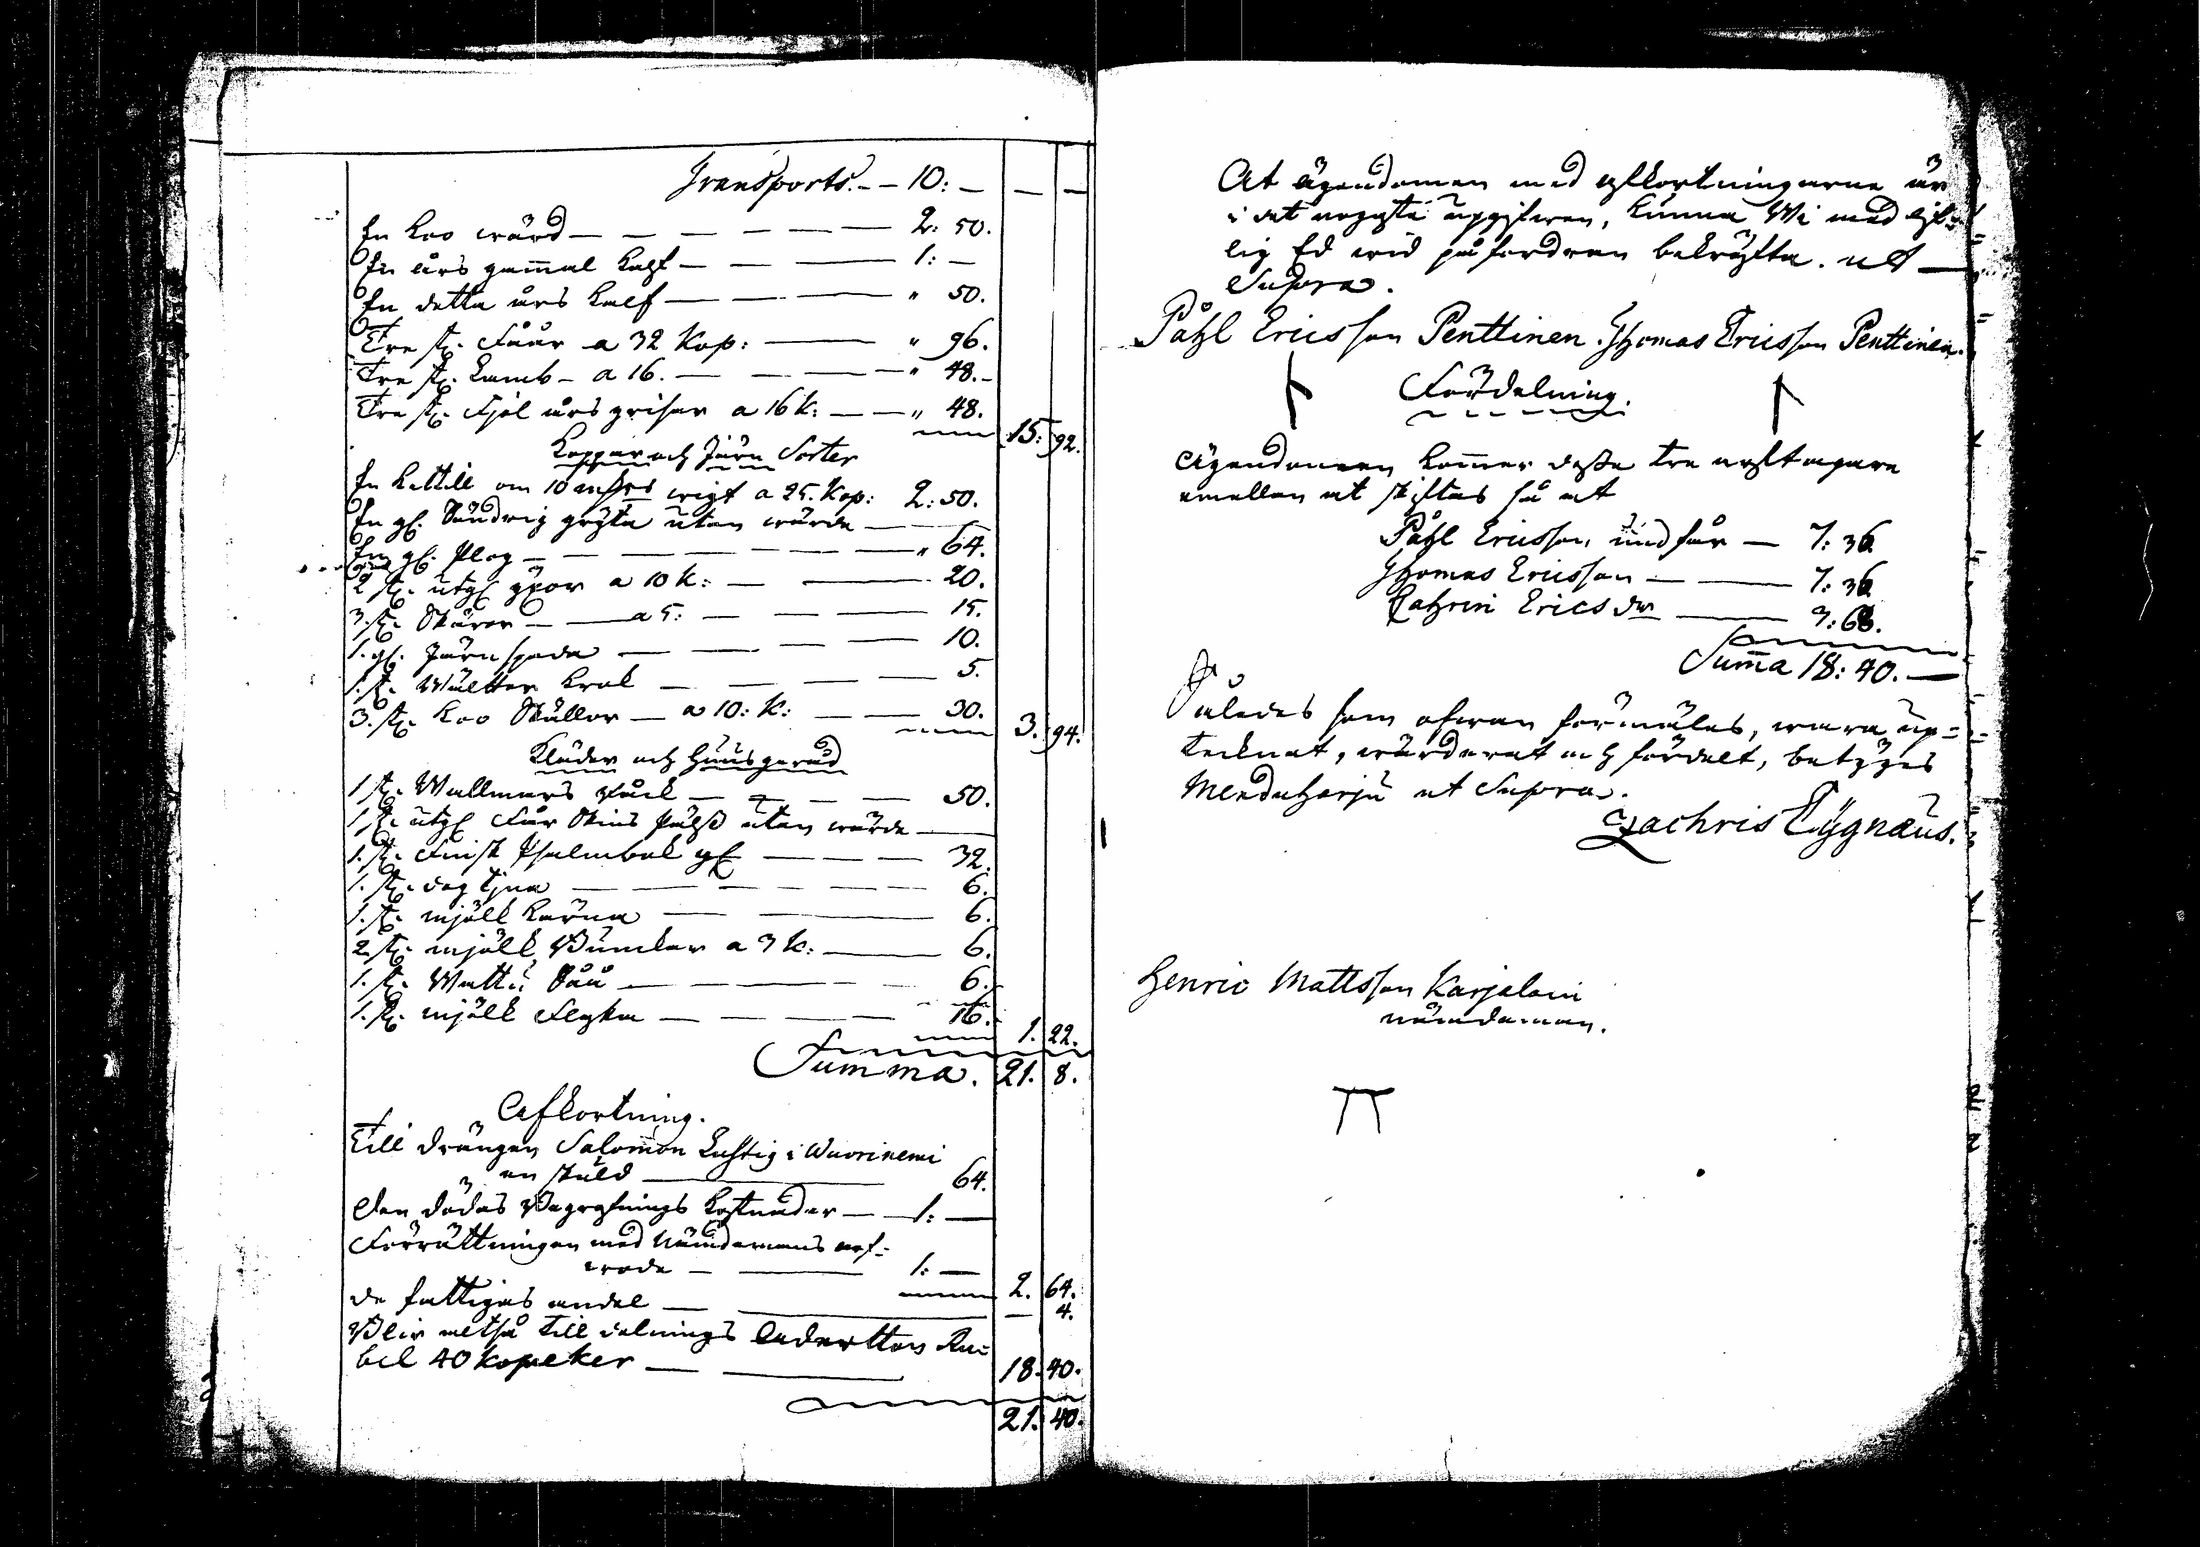 Transports. - - 10: - - -
En koo wärd - - - - - 2: 50.
En års gam̄al kalf - - - 1: -
En detta års kalf - - - " 50.
Tre st. Fåår a 32 kop: - - " 96.
Tre st. Lamb - a 16. - - - " 48. -
Tre st. Fjol års grisar a 16 k: - - " 48.
15: 92.
Koppar och Järn Sorter
En kettill om 10 wigt a 25. kop: 2: 50.
En gl. Söndrig gryta utan wärde -
En gl. Plog - - - - - " 64.
2 st. utgl. yxor a 10 k: - - 20.
3. st. Skäror - - a 5: - - - 15.
1. gl. Järn spada - - - 10.
1. st. Wält krok - - - 5.
3. st. koo Skällor - a 10: k: - - 30.
3. 94.
Kläder och Huusgeråd
1 st. Wallmars råck - - - - 50.
1 st. utgl. Får Skins Pälss utan wärde -
1. st. Finsk Psalmbok gl. - - - 32.
1. st. deg tjna - - - - 6.
1. st. mjölk kärna - - - 6.
2. st. mjölk Bunkar a 3 k: - 6.
1. st. Wattu Såå - - - 6.
1. st. mjölk Flaska - - - 16.
1. 22.
Summa. 21. 8.
Afkortning.
Till drängen Salomon Lustig i Wuoriniemi
en skuld - 64.
Den dödas Begrafnings kostnader - 1: -
Förrättningen med Nämdemans arf=
wode - - 1: -
2. 64.
de fattigas andel - - - 4.
Blir altså till delnings Aderton Ru=
bel 40 kopeker - - 18. 40.
21. 40.
At ägendomen med afkortningarne är
i det nogaste uppgifwen, kunna Wi med lif=
lig Ed wid påfordran bekräfta. ut
Supra.
Påhl Ericsson Penttinen. Thomas Ericsson Penttinen.
Fördelning.
Ägendomen kom̄er desse tre arftagare
emellan at skiftas så at
Påhl Ericsson, undfår - 7: 36
Thomas Ericsson - - 7: 36
Cathrin Ericsdr - 3: 68.
Sum̄a 18: 40. -
Således som ofwan förmäles, wara up=
tecknat, wärderat och fördelt, betyges
Menduharju ut Supra.
Zachris Cygnæus.
Henric Mattsson Karjalain
nämdeman.